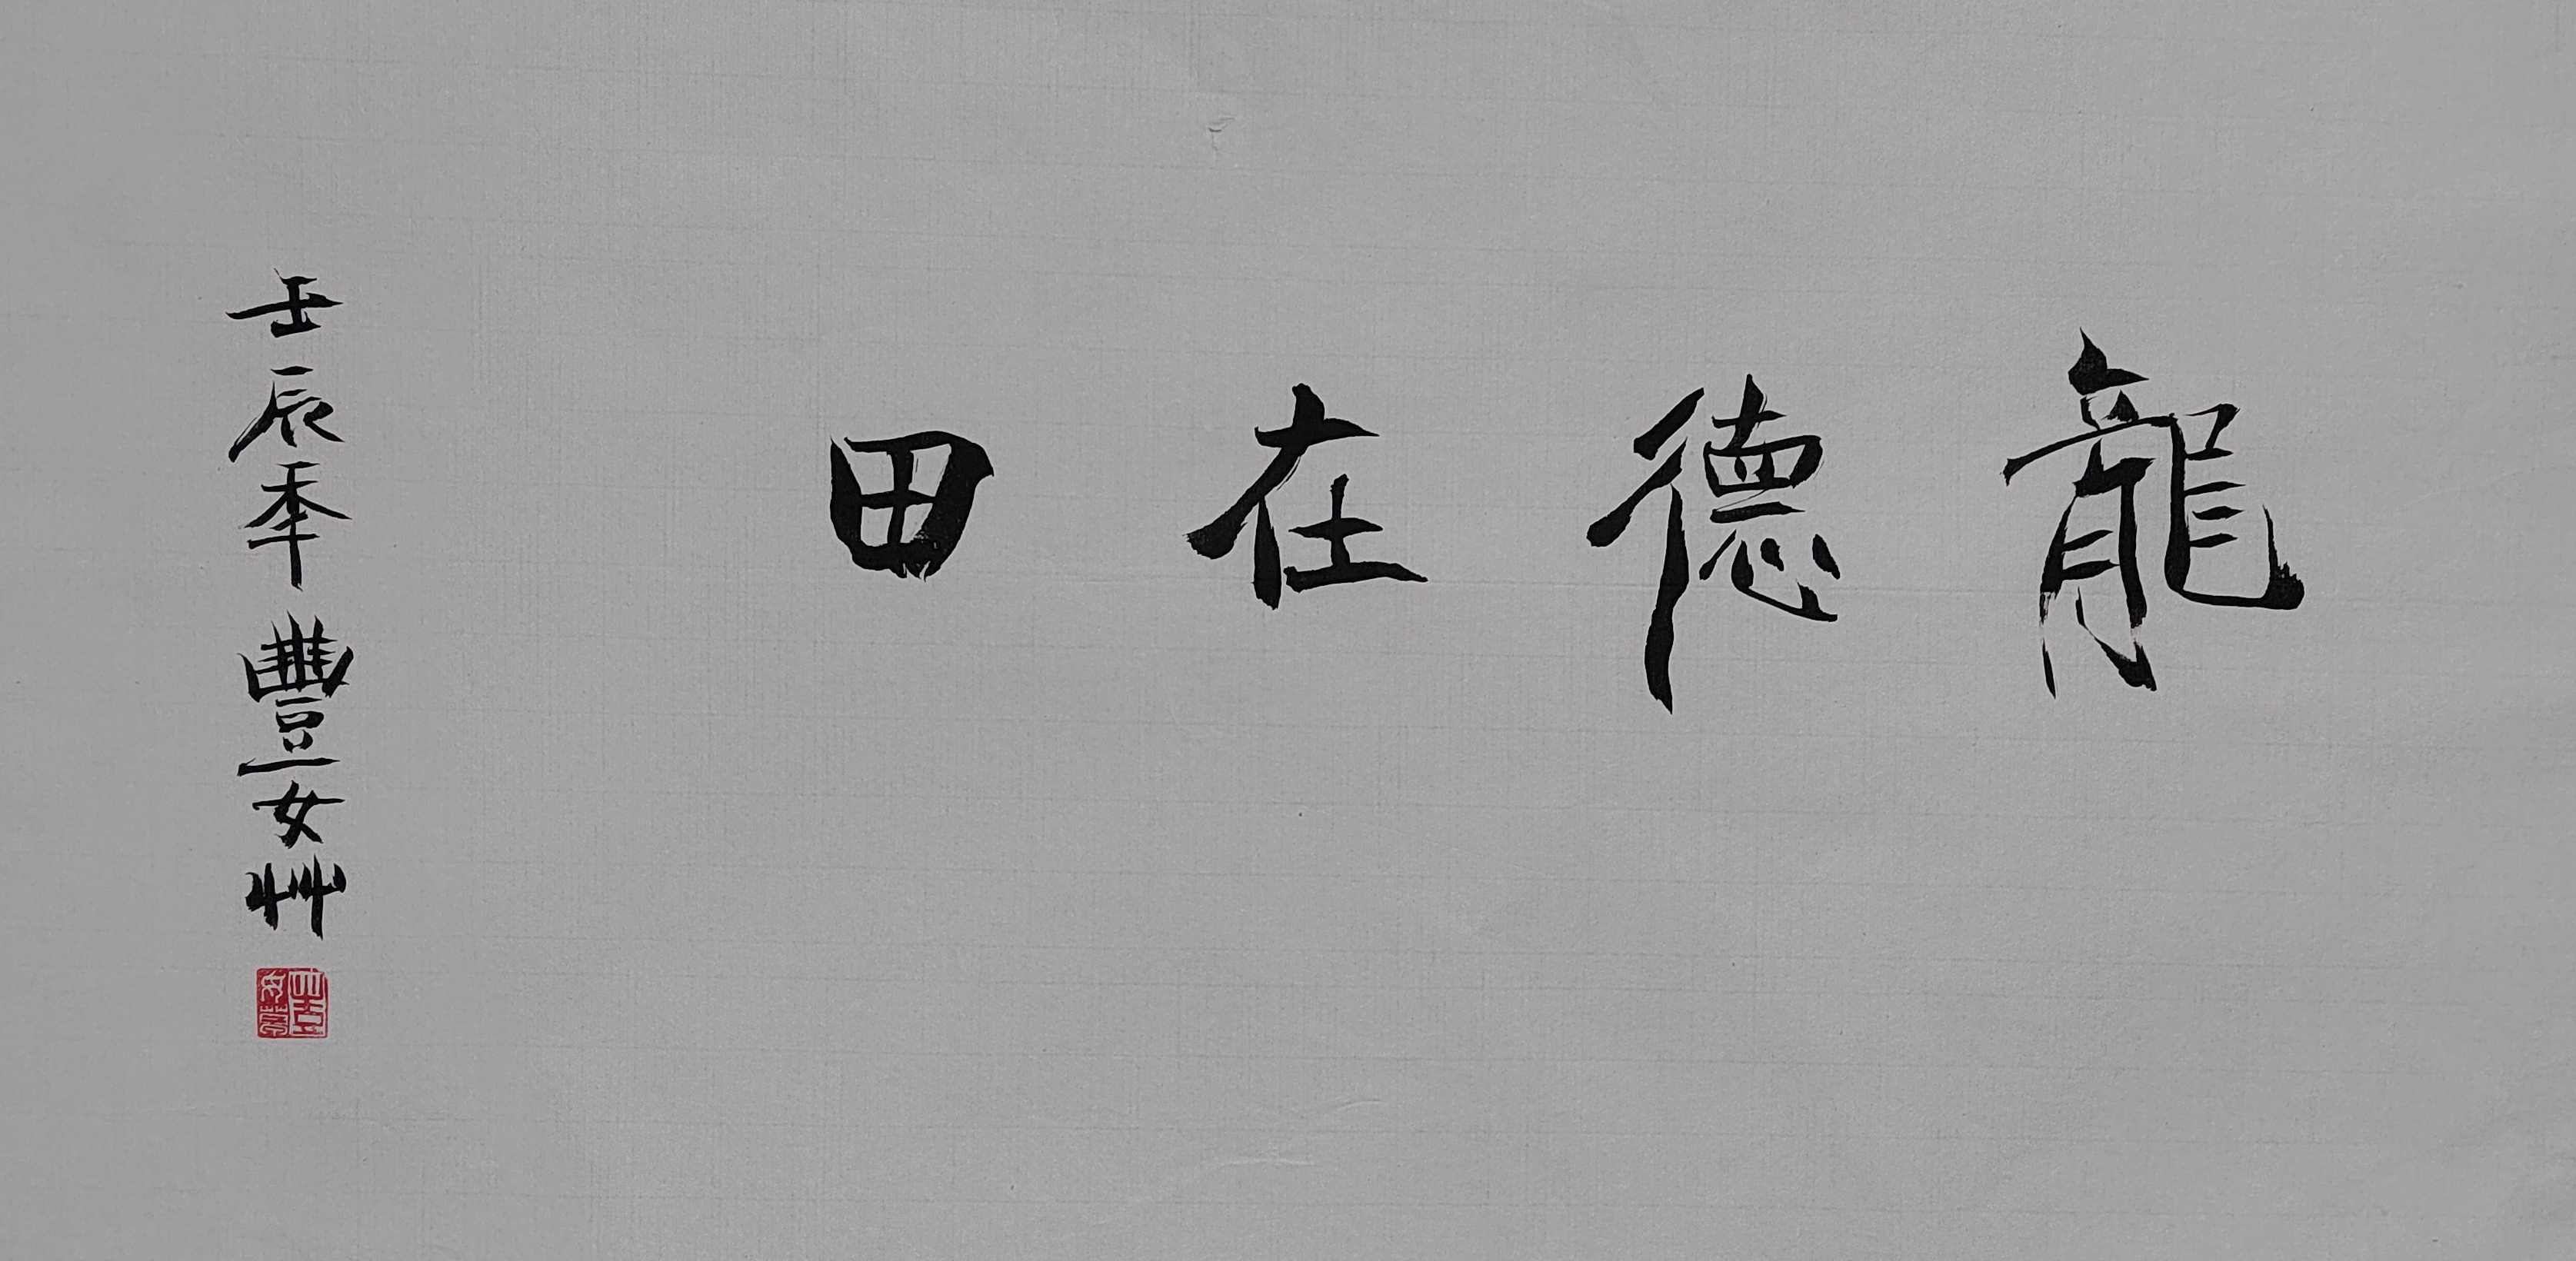 龍德在田
壬辰季豐女艸